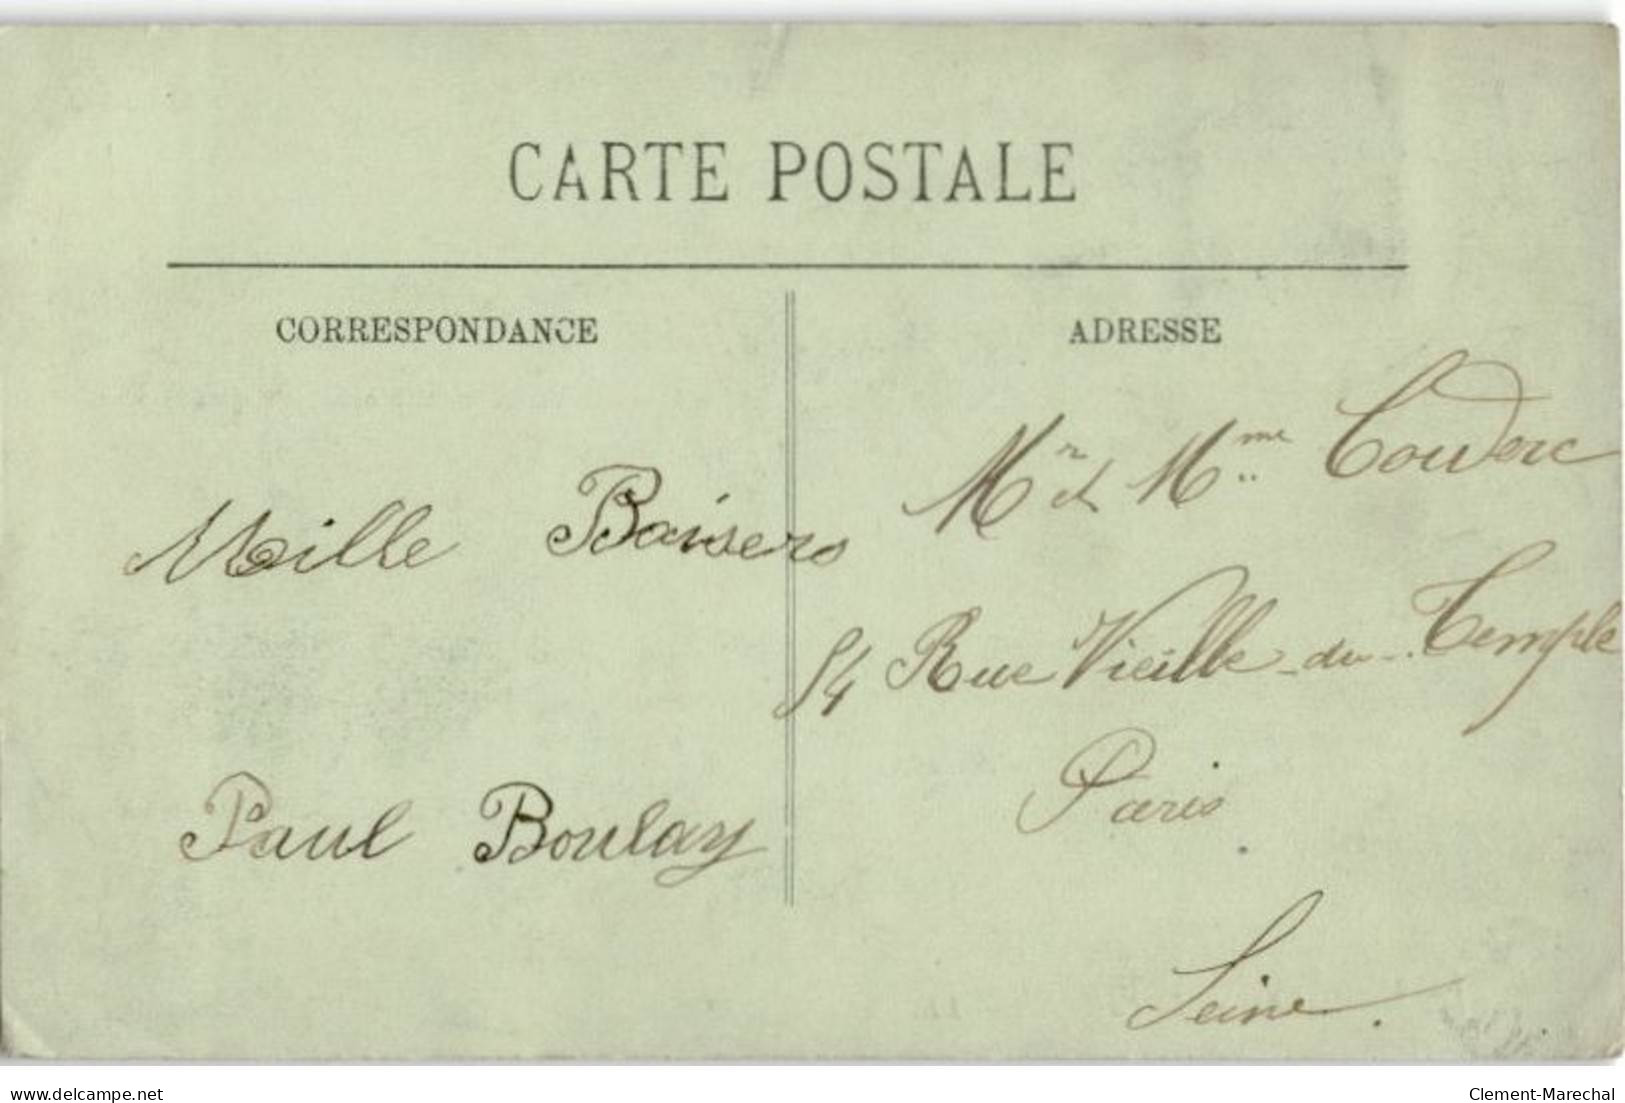 CARTE POSTALE
CORRESPONDANCE
Mille Baisers
Paul Boulay
ADRESSE
Mr et Mme Couderc
54 Rue Vieille-du-Temple
Paris.
Seine.
delcampe.net
Clement-Marechal